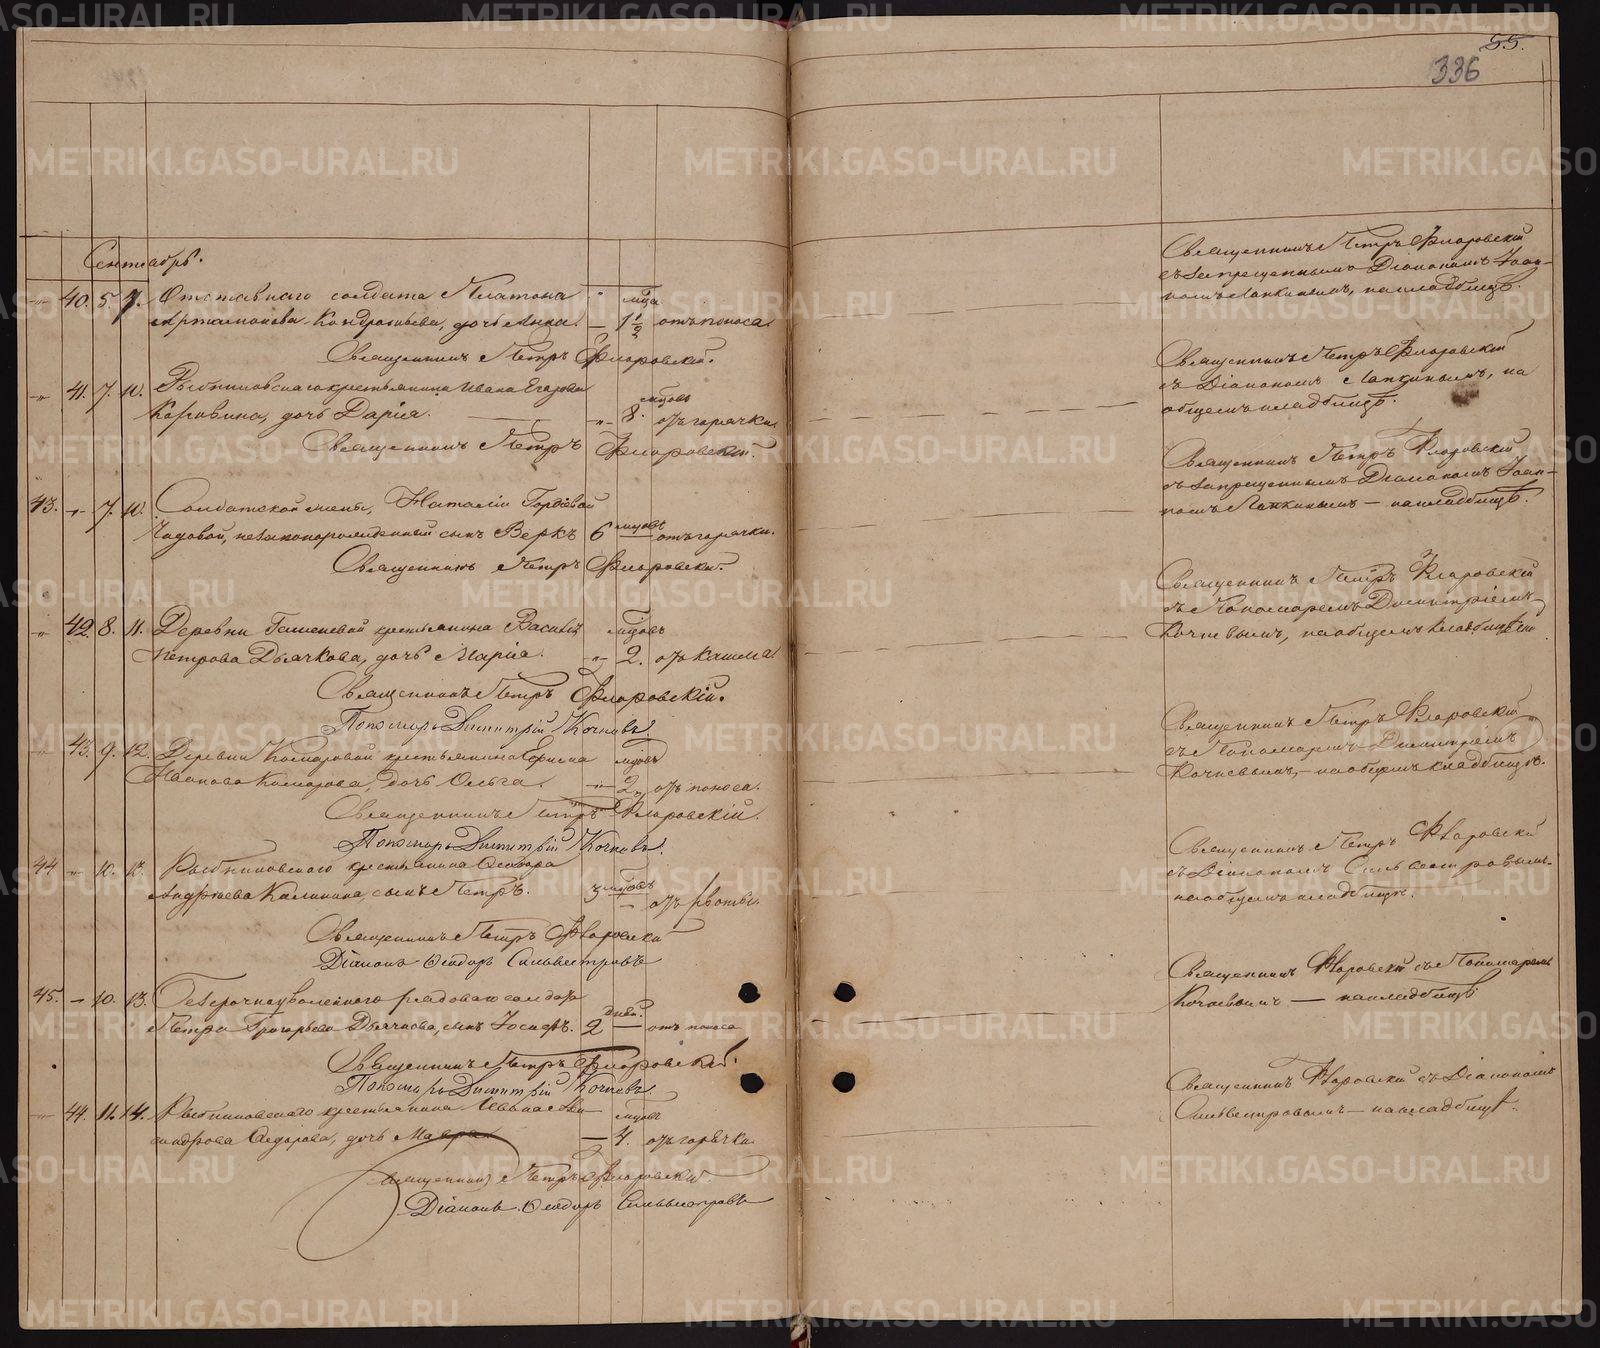 55.
336
Сентябрь.
40. 5. 7. Отставнаго солдата Платона мѣца
Артамонова Кондратьева, дочь Анна. — 1 1/2 отъ поноса.
Священникъ Петръ Флоровскій.
41. 7. 10. крестьянина Ивана Егорова мѣцовъ
дочь Дарія. 8. отъ горячки.
Священникъ Петръ Флоровскій.
43. 7. 10. Солдатской жены, Наталіи Гордѣевой
незаконнорожденный сынъ 6 мѣцовъ отъ горячки.
Священникъ Петръ Флоровскій.
42. 8. 11. Деревни крестьянина мѣцовъ
Петрова Дьячкова, дочь Марія. 2. отъ кашля.
Священникъ Петръ Флоровскій.
Пономарь Димитрій Кочневъ.
43. 9. 12. Деревни Комаровой крестьянина мѣцовъ
Иванова Комарова, дочь Ольга. 2 отъ поноса.
Священникъ Петръ Флоровскій.
Пономарь Димитрій Кочневъ.
44 10. 13. крестьянина Ѳеодора
Андреева Калинина, сынъ Петръ. 3 мѣцовъ отъ рвоты.
Священникъ Петръ Флоровскій
Діаконъ Ѳеодоръ Сильвестровъ
45. — 10. 13. рядоваго
Петра Григорьева Дьячкова, сынъ Іосифъ. 2 дней. отъ поноса
Священникъ Петръ Флоровскій.
Пономарь Димитрій Кочневъ.
44. 11. 14. крестьянина мѣцовъ
дочь Мавра — 4. отъ горячки.
Священникъ Петръ Флоровскій.
Діаконъ Ѳеодоръ Сильвестровъ
Священникъ Петръ Флоровскій
съ запрещеннымъ Діакономъ Іоан-
номъ Лапкинымъ, на кладбищѣ.
Священникъ Петръ Флоровскій
съ Діакономъ Лапкинымъ, на
общемъ кладбищѣ.
Священникъ Петръ Флоровскій
съ запрещеннымъ Діакономъ Іоан-
номъ Лапкинымъ — на кладбищѣ.
Священникъ Петръ Флоровскій
съ Пономаремъ Димитріемъ
Кочневымъ, на общемъ кладбищѣ
Священникъ Петръ Флоровскій
съ Пономаремъ Димитріемъ
Кочневымъ, — на общемъ кладбищѣ.
Священникъ Петръ Флоровскій
съ Діакономъ Сильвестровымъ
на общемъ кладбищѣ.
Священникъ Флоровскій съ Пономаремъ
Кочневымъ — на кладбищѣ
Священникъ Флоровскій съ Діакономъ
Сильвестровымъ — на кладбищѣ.
METRIKI.GASO-URAL.RU